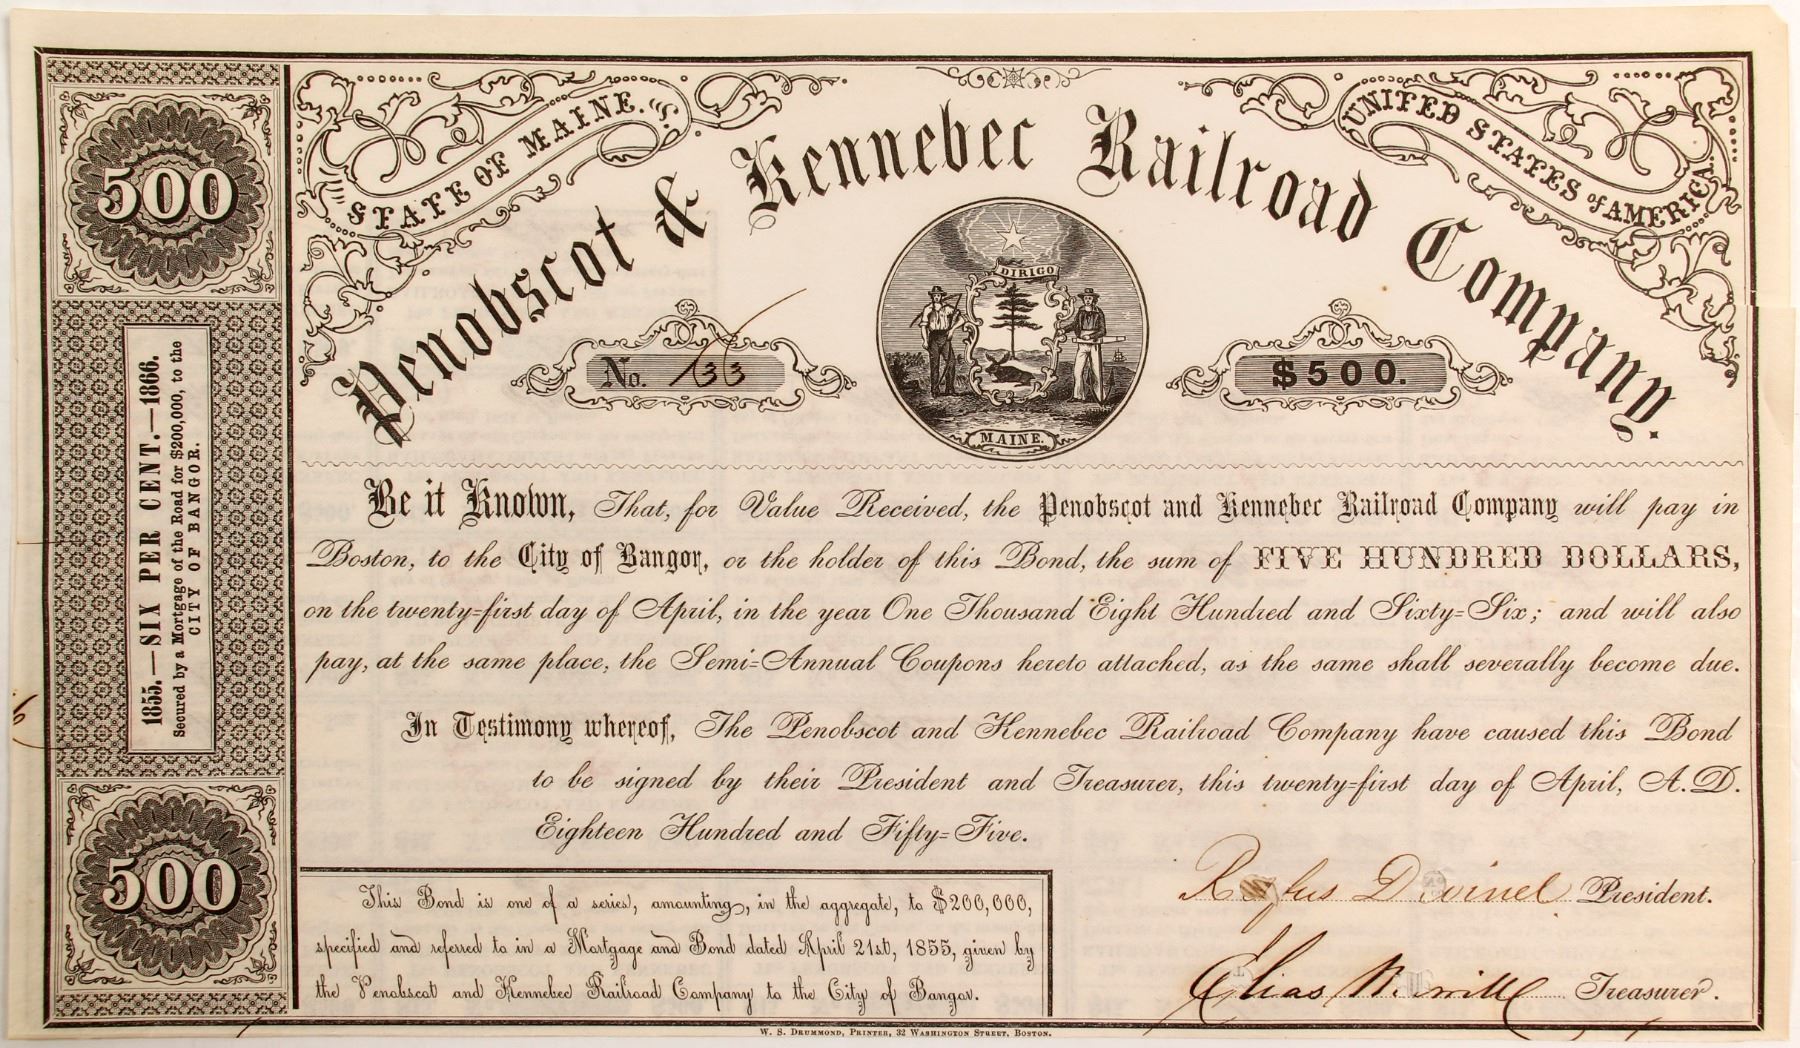 STATE OF MAINE.
UNITED STATES of AMERICA.
Penobscot & Kennebec Railroad Company.
500
No. 133
DIRIGO
MAINE.
$500.
1855.—SIX PER CENT.—1866.
Secured by a Mortgage of the Road for $200,000, to the
CITY OF BANGOR.
Be it Known, That, for Value Received, the Penobscot and Kennebec Railroad Company will pay in
Boston, to the City of Bangor, or the holder of this Bond, the sum of FIVE HUNDRED DOLLARS,
on the twenty=first day of April, in the year One Thousand Eight Hundred and Sixty=Six; and will also
pay, at the same place, the Semi=Annual Coupons hereto attached, as the same shall severally become due.
In Testimony whereof, The Penobscot and Kennebec Railroad Company have caused this Bond
to be signed by their President and Treasurer, this twenty=first day of April, A.D.
Eighteen Hundred and Fifty=Five.
500
This Bond is one of a series, amounting, in the aggregate, to $200,000,
specified and referred to in a Mortgage and Bond dated April 21st, 1855, given by
the Penobscot and Kennebec Railroad Company to the City of Bangor.
Rufus Dwinel President.
Elias Treasurer.
W. S. DRUMMOND, PRINTER, 32 WASHINGTON STREET, BOSTON.